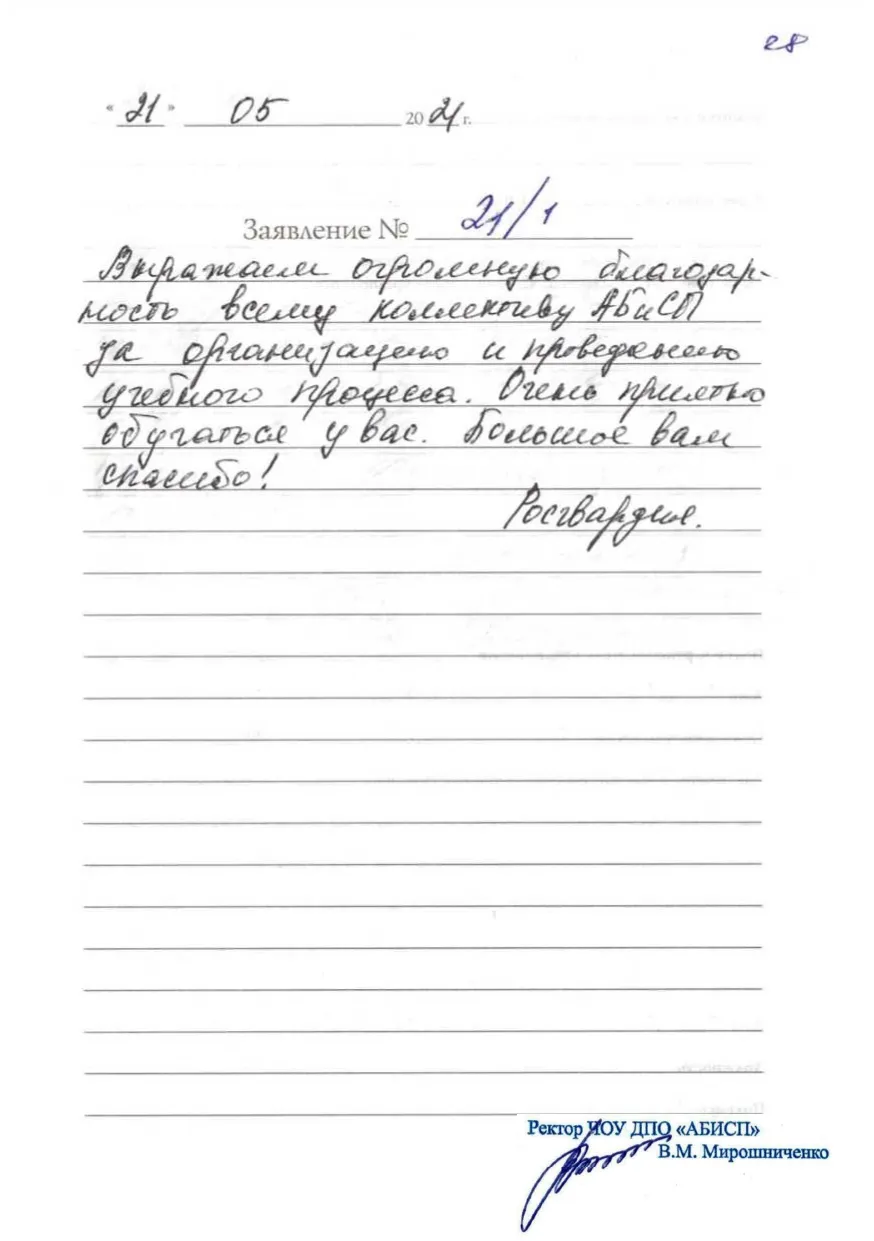 28
« 21 » 05 2021 г.
Заявление № 21/1
Выражаем огромную благодар-
ность всему коллективу АБиСП
за организацию и проведению
учебного процесса. Очень приятно
обучаться у вас. Большое вам
спасибо!
Росгвардия.
Ректор ЧОУ ДПО «АБИСП»
В.М. Мирошниченко